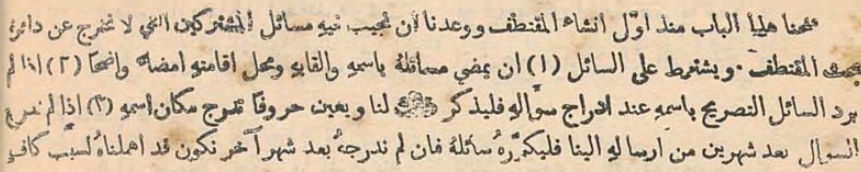 فتحنا هذا الباب منذ اوّل انشاء المقتطف ووعدنا ان نجيب فيهِ مسائل المشتركين التي لا تخرج عن دائرة
بحث المقتطف . ويشترط على السائل (١) ان يمضي مسائلهُ باسمهِ والقابهِ ومحل اقامتهِ امضاءً واضحًا (٢) اذا لم
يرد السائل التصريح باسمهِ عند ادراج سوَّالهِ فليذكر ذلك لنا ويعين حروفًا تدرج مكان اسمهِ (٣) اذا لم ندرج
السوال بعد شهرين من ارسالهِ الينا فليكرّرهُ سائلهُ فان لم ندرجهُ بعد شهر آخر نكون قد اهملناهُ لسبب كافٍ